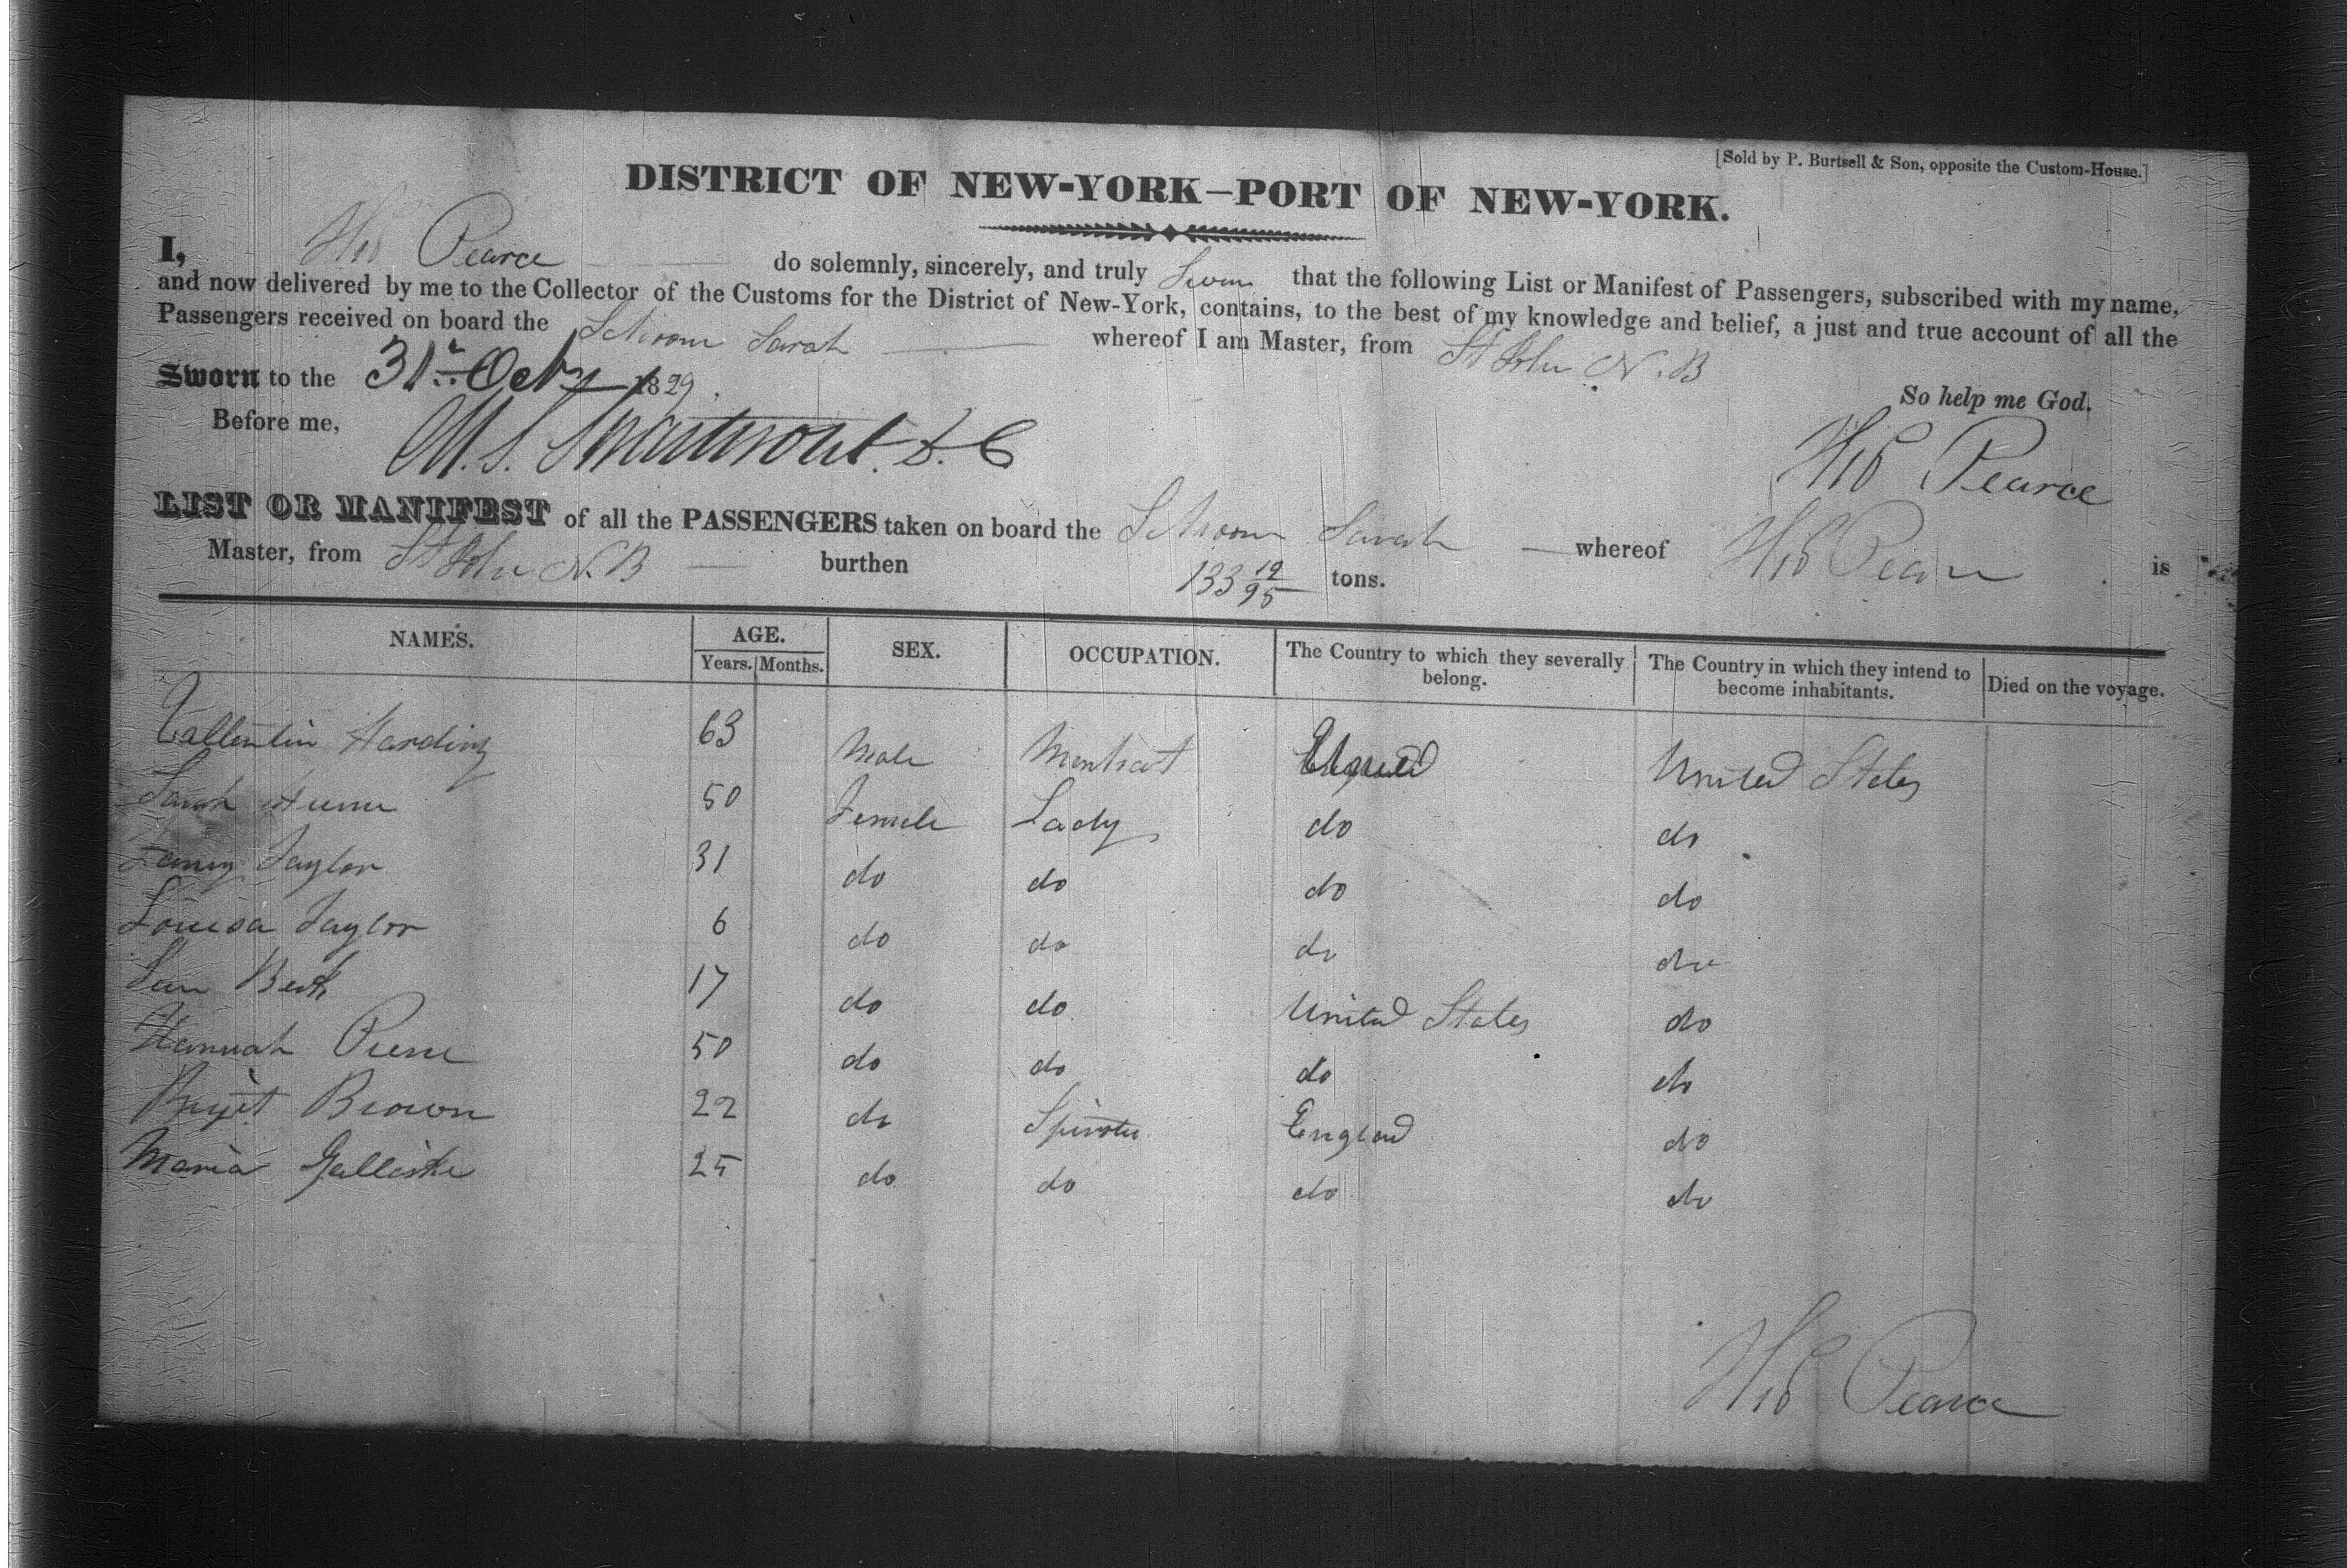 [Sold by P. Burtsell & Son, opposite the Custom-House.]
DISTRICT OF NEW-YORK—PORT OF NEW-YORK.
I, Pearce do solemnly, sincerely, and truly Swear that the following List or Manifest of Passengers, subscribed with my name,
and now delivered by me to the Collector of the Customs for the District of New-York, contains, to the best of my knowledge and belief, a just and true account of all the
Passengers received on board the Schooner Sarah whereof I am Master, from St John N.B
Sworn to the 31st Octr 1829. So help me God.
Before me, M. S. Swartwout. D. C Pearce
LIST OR MANIFEST of all the PASSENGERS taken on board the Schooner Sarah whereof Pearce is
Master, from St John N.B burthen 133 19/95 tons.
NAMES. AGE. SEX. OCCUPATION. The Country to which they severally belong. The Country in which they intend to become inhabitants. Died on the voyage.
Years. Months.
Vallentin Harding 63 Male England United States
Sarah 50 Female Lady do do
Fanny Taylor 31 do do do do
Louisa Taylor 6 do do do do
17 do do United States do
Hannah 50 do do do do
Brown 22 do Spinster England do
Maria 25 do do do do
Pearce